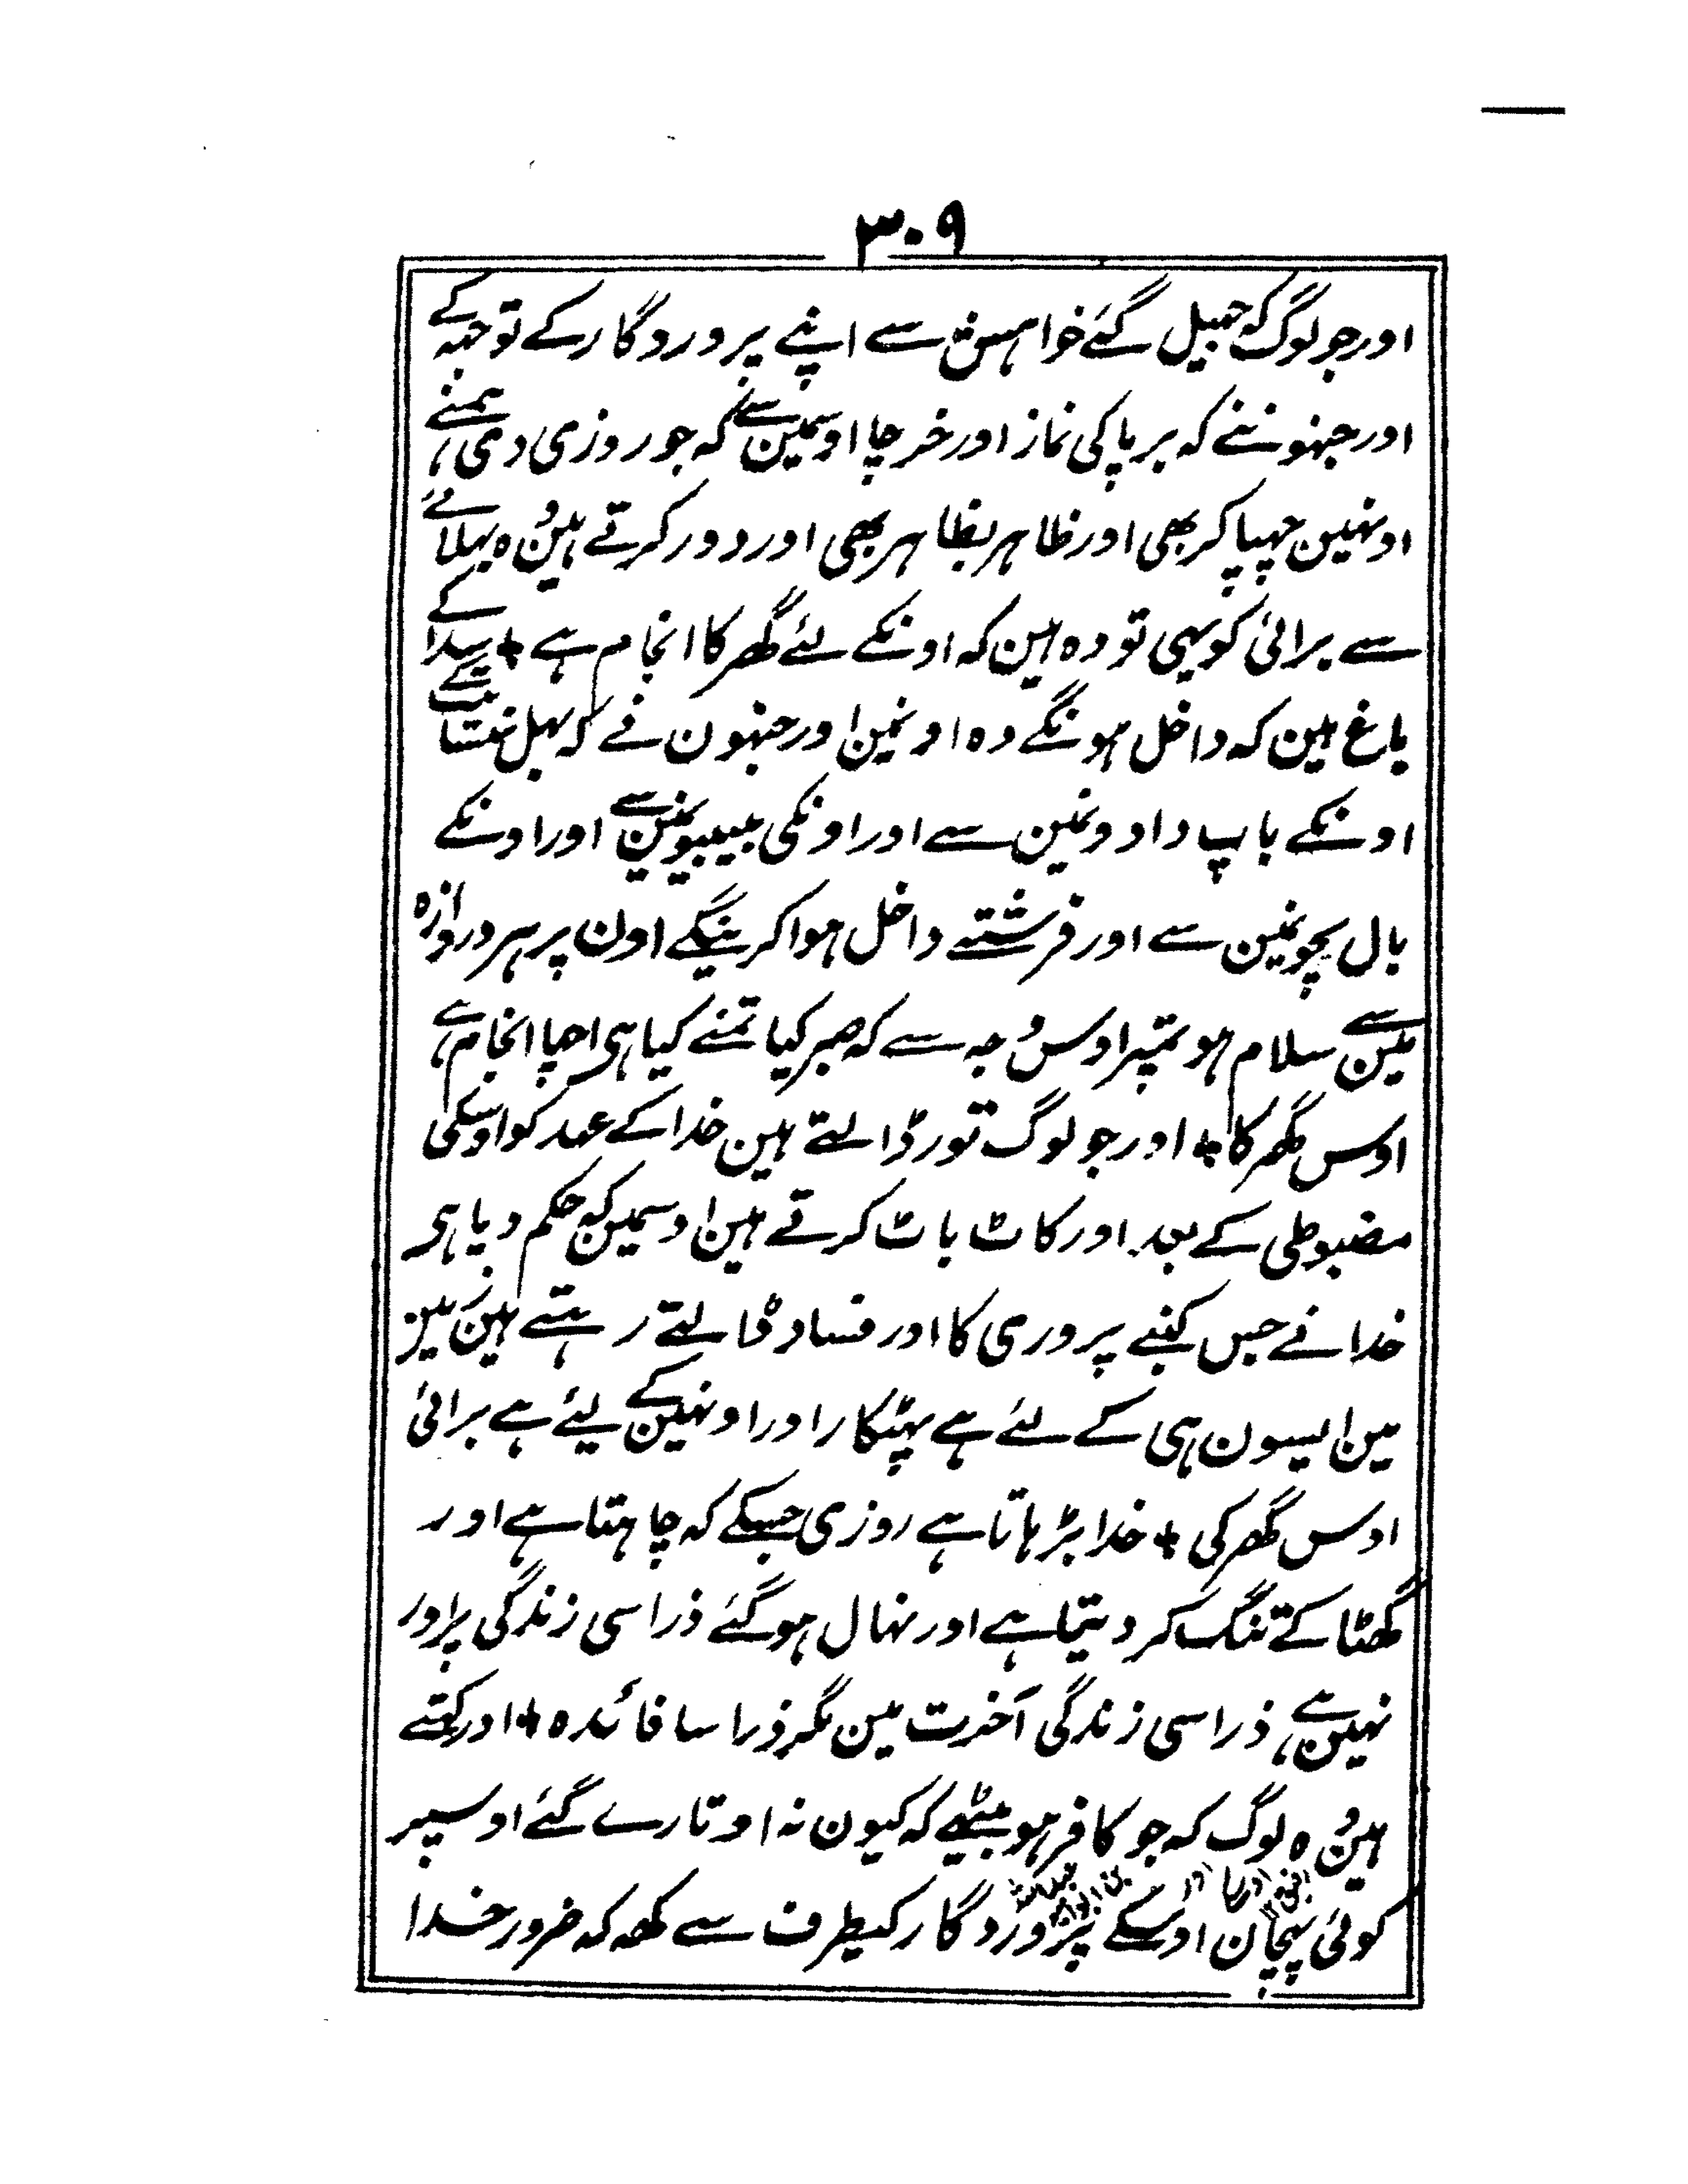 ۳۰۹
اور جو لوگ کہ جھیل گئے خواہش سے اپنے پروردگار کے توجہہ کے
اور جنہوننے کہ برپا کی نماز اور خرچا اوسمین سے کہ جو روزی دی ہمنے
اونہین چہپا کر بھی اور ظاہر بظاہر بھی اور دور کرتے ہین وہ بہلائے
سے برائی کو یہی تو وہ ہین کہ اونکے لئے گھر کا انجام ہے + سدا کے
باغ ہین کہ داخل ہونگے وہ اونمین اور جنہون نے کہ بہل منسائے کے
اونکے باپ دادونمین سے اور اونکی بیبیونمین سے اور اونکے
بال بچونمین سے اور فرشتے داخل ہوا کرینگے اون پر ہر دروازہ
مین سے سلام ہو تمپر اوس وجہ سے کہ صبر کیا تمنے کیا ہی اچا انجام ہے
اوس گھر کا + اور جو لوگ توڑ ڈالتے ہین خدا کے عہد کو اوسکی
مضبوطی کے بعد اور کاٹ باٹ کرتے ہین اوسمین کہ حکم دیا ہی
خدا نے جس کنبے پروری کا اور فساد ڈالتے رہتے ہین زمین
مین ایسون ہی کے لئے ہے پہٹکار اور اونہین کے لیئے ہے برائی
اوس گھر کی + خدا بڑہاتا ہے روزی جسکے کہ چاہتا ہے اور
گھٹا کے تنگ کر دیتا ہے اور نہال ہو گئے ذرا سی زندگی پر اور
نہین ہے ذرا سی زندگی آخرت مین مگر ذرا سا فائدہ + اور کہتے
ہین وہ لوگ کہ جو کافر ہو بیٹھے کہ کیون نہ اوتارے گئے اوسپر
کوئی پہچان اوسکے پروردگار کیطرف سے کہہ کہ ضرور خدا